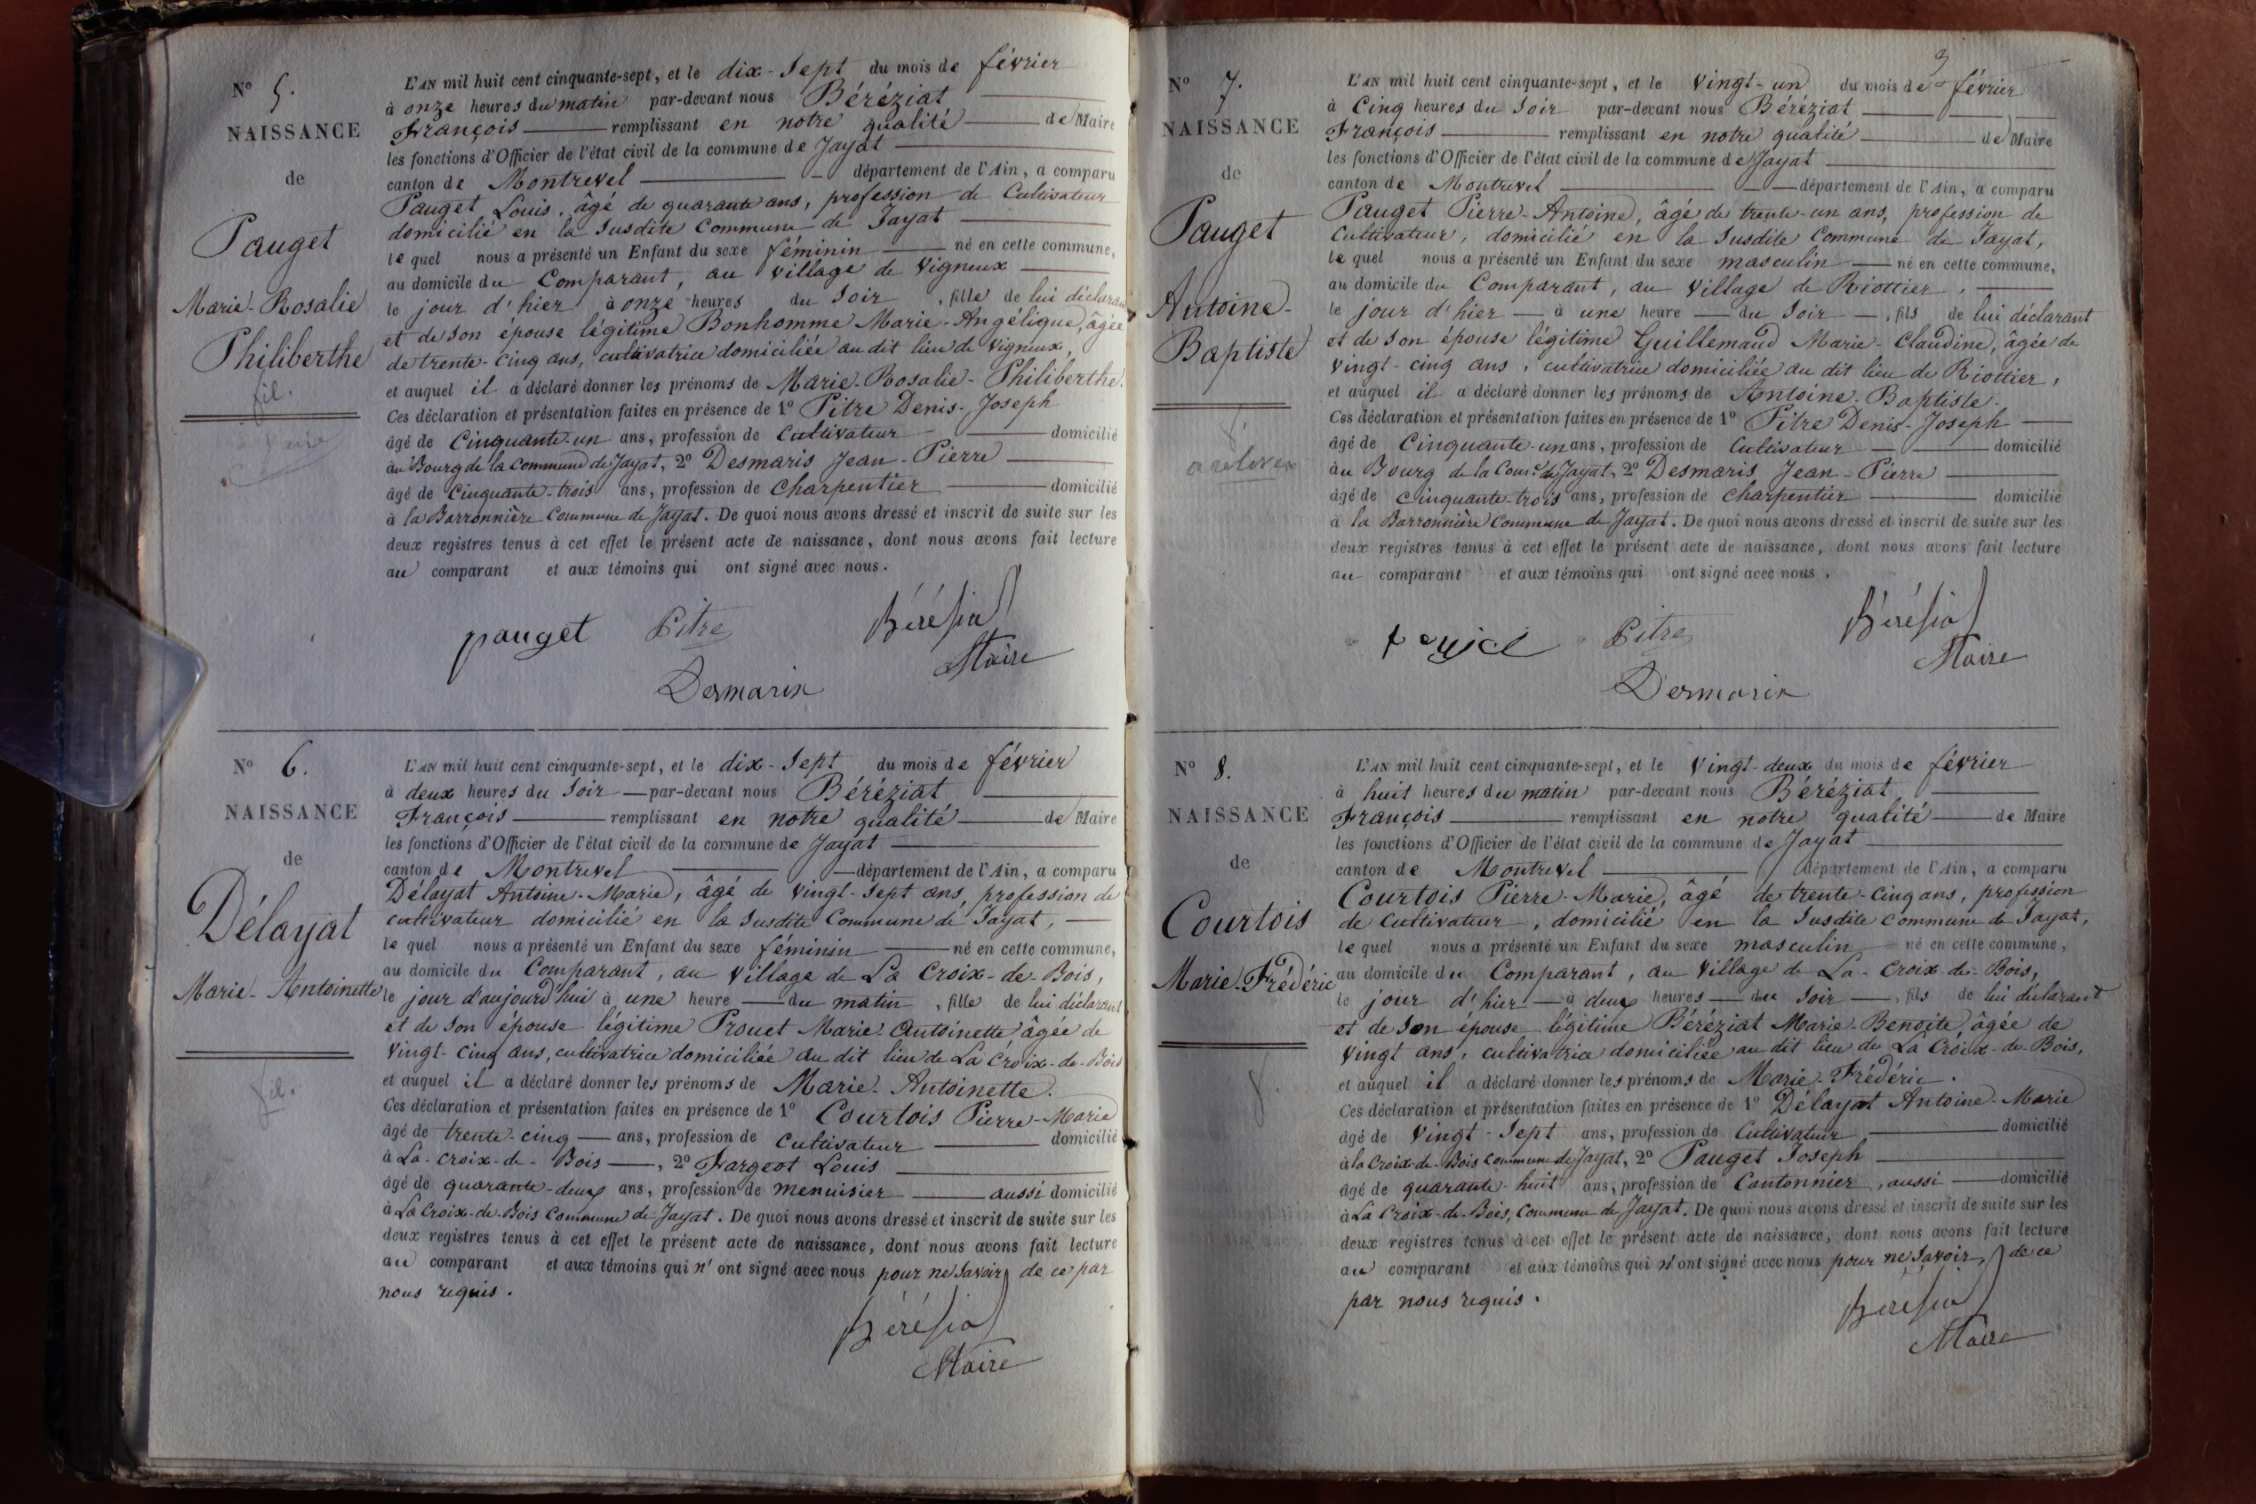 N° 5.
NAISSANCE
de
Pauget
Marie-Rosalie
Philiberthe
fil.
L'AN mil huit cent cinquante-sept, et le dix-sept du mois de février
à onze heures du matin par-devant nous Béréziat
François remplissant en notre qualité de Maire
les fonctions d'Officier de l'état civil de la commune de Jayat
canton de Montrevel département de l'Ain, a comparu
Pauget Louis, âgé de quarante ans, profession de Cultivateur
domicilié en la susdite Commune de Jayat
le quel nous a présenté un Enfant du sexe féminin né en cette commune,
au domicile du Comparant, au village de Vigneux
le jour d'hier à onze heures du soir, fille de lui déclarant
et de son épouse légitime Bonhomme Marie-Angélique, âgée
de trente-cinq ans, cultivatrice domiciliée au dit lieu de Vigneux,
et auquel il a déclaré donner les prénoms de Marie-Rosalie-Philiberthe.
Ces déclaration et présentation faites en présence de 1° Pitre Denis-Joseph
âgé de Cinquante-un ans, profession de Cultivateur domicilié
au Bourg de la Commune de Jayat, 2° Desmaris Jean-Pierre
âgé de cinquante-trois ans, profession de charpentier domicilié
à la Barronnière Commune de Jayat. De quoi nous avons dressé et inscrit de suite sur les
deux registres tenus à cet effet le présent acte de naissance, dont nous avons fait lecture
au comparant et aux témoins qui ont signé avec nous.
pauget Pitre Bérésiat
Maire
Desmaris
N° 6.
NAISSANCE
de
Délayat
Marie-Antoinette
fil.
L'AN mil huit cent cinquante-sept, et le dix-sept du mois de février
à deux heures du soir par-devant nous Béréziat
François remplissant en notre qualité de Maire
les fonctions d'Officier de l'état civil de la commune de Jayat
canton de Montrevel département de l'Ain, a comparu
Délayat Antoine-Marie, âgé de vingt-sept ans, profession de
cultivateur domicilié en la susdite Commune de Jayat,
le quel nous a présenté un Enfant du sexe féminin né en cette commune,
au domicile du Comparant, au village de La Croix-de-Bois,
le jour d'aujourd'hui à une heure du matin, fille de lui déclarant
et de son épouse légitime Prouet Marie-Antoinette âgée de
vingt-cinq ans, cultivatrice domiciliée au dit lieu de La Croix-de-Bois
et auquel il a déclaré donner les prénoms de Marie-Antoinette.
Ces déclaration et présentation faites en présence de 1° Courtois Pierre-Marie
âgé de trente-cinq ans, profession de Cultivateur domicilié
à La-Croix-de-Bois, 2° Fargeot Louis
âgé de quarante-deux ans, profession de menuisier aussi domicilié
à La Croix-de-Bois Commune de Jayat. De quoi nous avons dressé et inscrit de suite sur les
deux registres tenus à cet effet le présent acte de naissance, dont nous avons fait lecture
au comparant et aux témoins qui n'ont signé avec nous pour ne savoir, de ce par
nous requis.
Bérésiat
Maire
3
N° 7.
NAISSANCE
de
Pauget
Antoine-
Baptiste
L'AN mil huit cent cinquante-sept, et le vingt-un du mois de février
à Cinq heures du soir par-devant nous Béréziat
François remplissant en notre qualité de Maire
les fonctions d'Officier de l'état civil de la commune de Jayat
canton de Montrevel département de l'Ain, a comparu
Pauget Pierre-Antoine, âgé de trente-un ans, profession de
Cultivateur, domicilié en la susdite Commune de Jayat,
le quel nous a présenté un Enfant du sexe masculin né en cette commune,
au domicile du Comparant, au village de Riottier,
le jour d'hier à une heure du soir, fils de lui déclarant
et de son épouse légitime Guillemaud Marie-Claudine, âgée de
vingt-cinq ans, cultivatrice domiciliée au dit lieu de Riottier,
et auquel il a déclaré donner les prénoms de Antoine-Baptiste.
Ces déclaration et présentation faites en présence de 1° Pitre Denis-Joseph
âgé de Cinquante-un ans, profession de Cultivateur domicilié
au Bourg de la Com.e de Jayat, 2° Desmaris Jean-Pierre
âgé de cinquante-trois ans, profession de charpentier domicilié
à la Barronnière Commune de Jayat. De quoi nous avons dressé et inscrit de suite sur les
deux registres tenus à cet effet le présent acte de naissance, dont nous avons fait lecture
au comparant et aux témoins qui ont signé avec nous.
Pitre Bérésiat
Maire
Desmaris
N° 8.
NAISSANCE
de
Courtois
Marie-Frédéric
L'AN mil huit cent cinquante-sept, et le vingt-deux du mois de février
à huit heures du matin par-devant nous Béréziat
François remplissant en notre qualité de Maire
les fonctions d'Officier de l'état civil de la commune de Jayat
canton de Montrevel département de l'Ain, a comparu
Courtois Pierre-Marie, âgé de trente-cinq ans, profession
de Cultivateur, domicilié en la susdite commune de Jayat,
le quel nous a présenté un Enfant du sexe masculin né en cette commune,
au domicile du Comparant, au village de La-Croix-de-Bois,
le jour d'hier à deux heures du soir, fils de lui déclarant
et de son épouse légitime Béréziat Marie-Benoite, âgée de
vingt ans, cultivatrice domiciliée au dit lieu de La Croix-de-Bois,
et auquel il a déclaré donner les prénoms de Marie-Frédéric.
Ces déclaration et présentation faites en présence de 1° Délayat Antoine-Marie
âgé de vingt-sept ans, profession de Cultivateur domicilié
à la Croix-de-Bois commune de Jayat, 2° Pauget Joseph
âgé de quarante-huit ans, profession de Cantonnier, aussi domicilié
à La Croix-de-Bois, Commune de Jayat. De quoi nous avons dressé et inscrit de suite sur les
deux registres tenus à cet effet le présent acte de naissance, dont nous avons fait lecture
au comparant et aux témoins qui n'ont signé avec nous pour ne savoir, de ce
par nous requis.
Bérésiat
Maire